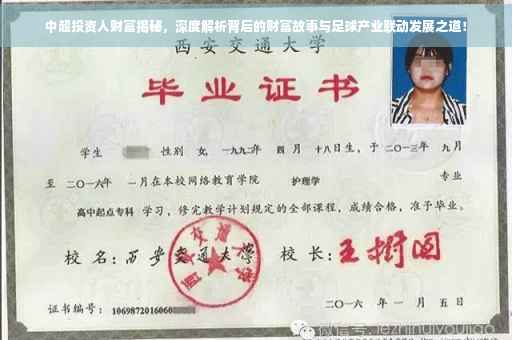 中超投资人财富揭秘，深度解析背后的财富故事与足球产业联动发展之道！
西安交通大学
毕业证书
学生 性别 女，一九九二年 四月 十八日生，于二〇一三年 九月
至 二〇一六年 一月在本校网络教育学院 护理学 专业
高中起点专科 学习，修完教学计划规定的全部课程，成绩合格，准予毕业。
校名：西安交通大学 校长：王树国
西安交通大学
证书编号：1069872016060
二〇一六年 一月 五日
微信号: jezhinuiyoujiao